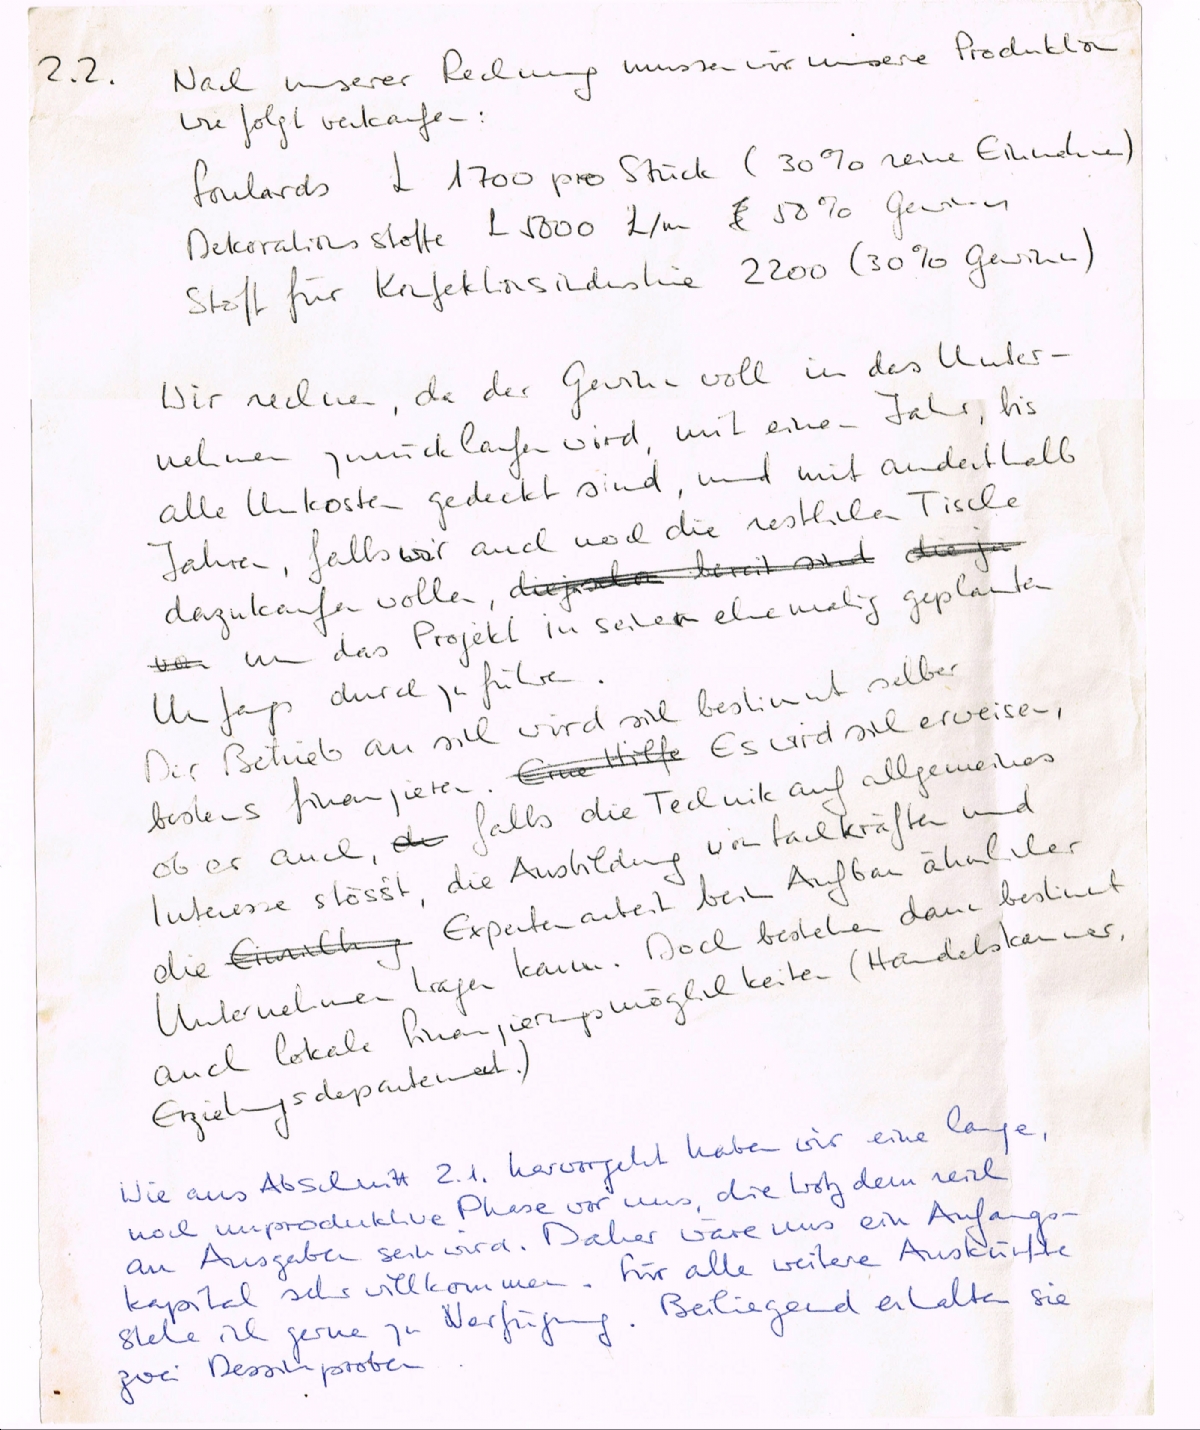 2.2. Nach unserer Rechnung müssen wir unsere Produktion
wie folgt verkaufen:
Foulards £ 1700 pro Stück (30% reine Einnahmen)
Dekorationsstoffe £ 5000 £/m 50% Gewinn
Stoff für Konfektionsindustrie 2200 (30% Gewinn)
Wir rechnen, da der Gewinn voll in das Unter-
nehmen zurücklaufen wird, mit einem Jahr, bis
alle Unkosten gedeckt sind, und mit anderthalb
Jahren, falls wir auch noch die restlichen Tische
dazukaufen wollen, bereit sind die ja
um das Projekt in seinem ehemalig geplanten
Umfangs durchzuführen.
Der Betrieb an sich wird sich bestimmt selber
bestens finanzieren. Eine Hilfe Es wird sich erweisen,
ob er auch, falls die Technik auf allgemeines
Interesse stösst, die Ausbildung von Fachkräften und
die Expertenarbeit beim Aufbau ähnlicher
Unternehmen tragen kann. Doch bestehen dann bestimmt
auch lokale Finanzierungsmöglichkeiten (Handelskammer,
Erziehungsdepartement.)
Wie aus Abschnitt 2.1. hervorgeht haben wir eine lange,
noch unproduktive Phase vor uns, die trotzdem reich
an Ausgaben sein wird. Daher wäre uns ein Anfangs-
kapital sehr willkommen. Für alle weitere Auskünfte
stehe ich gerne zu Verfügung. Beiliegend erhalten sie
zwei Dessinproben